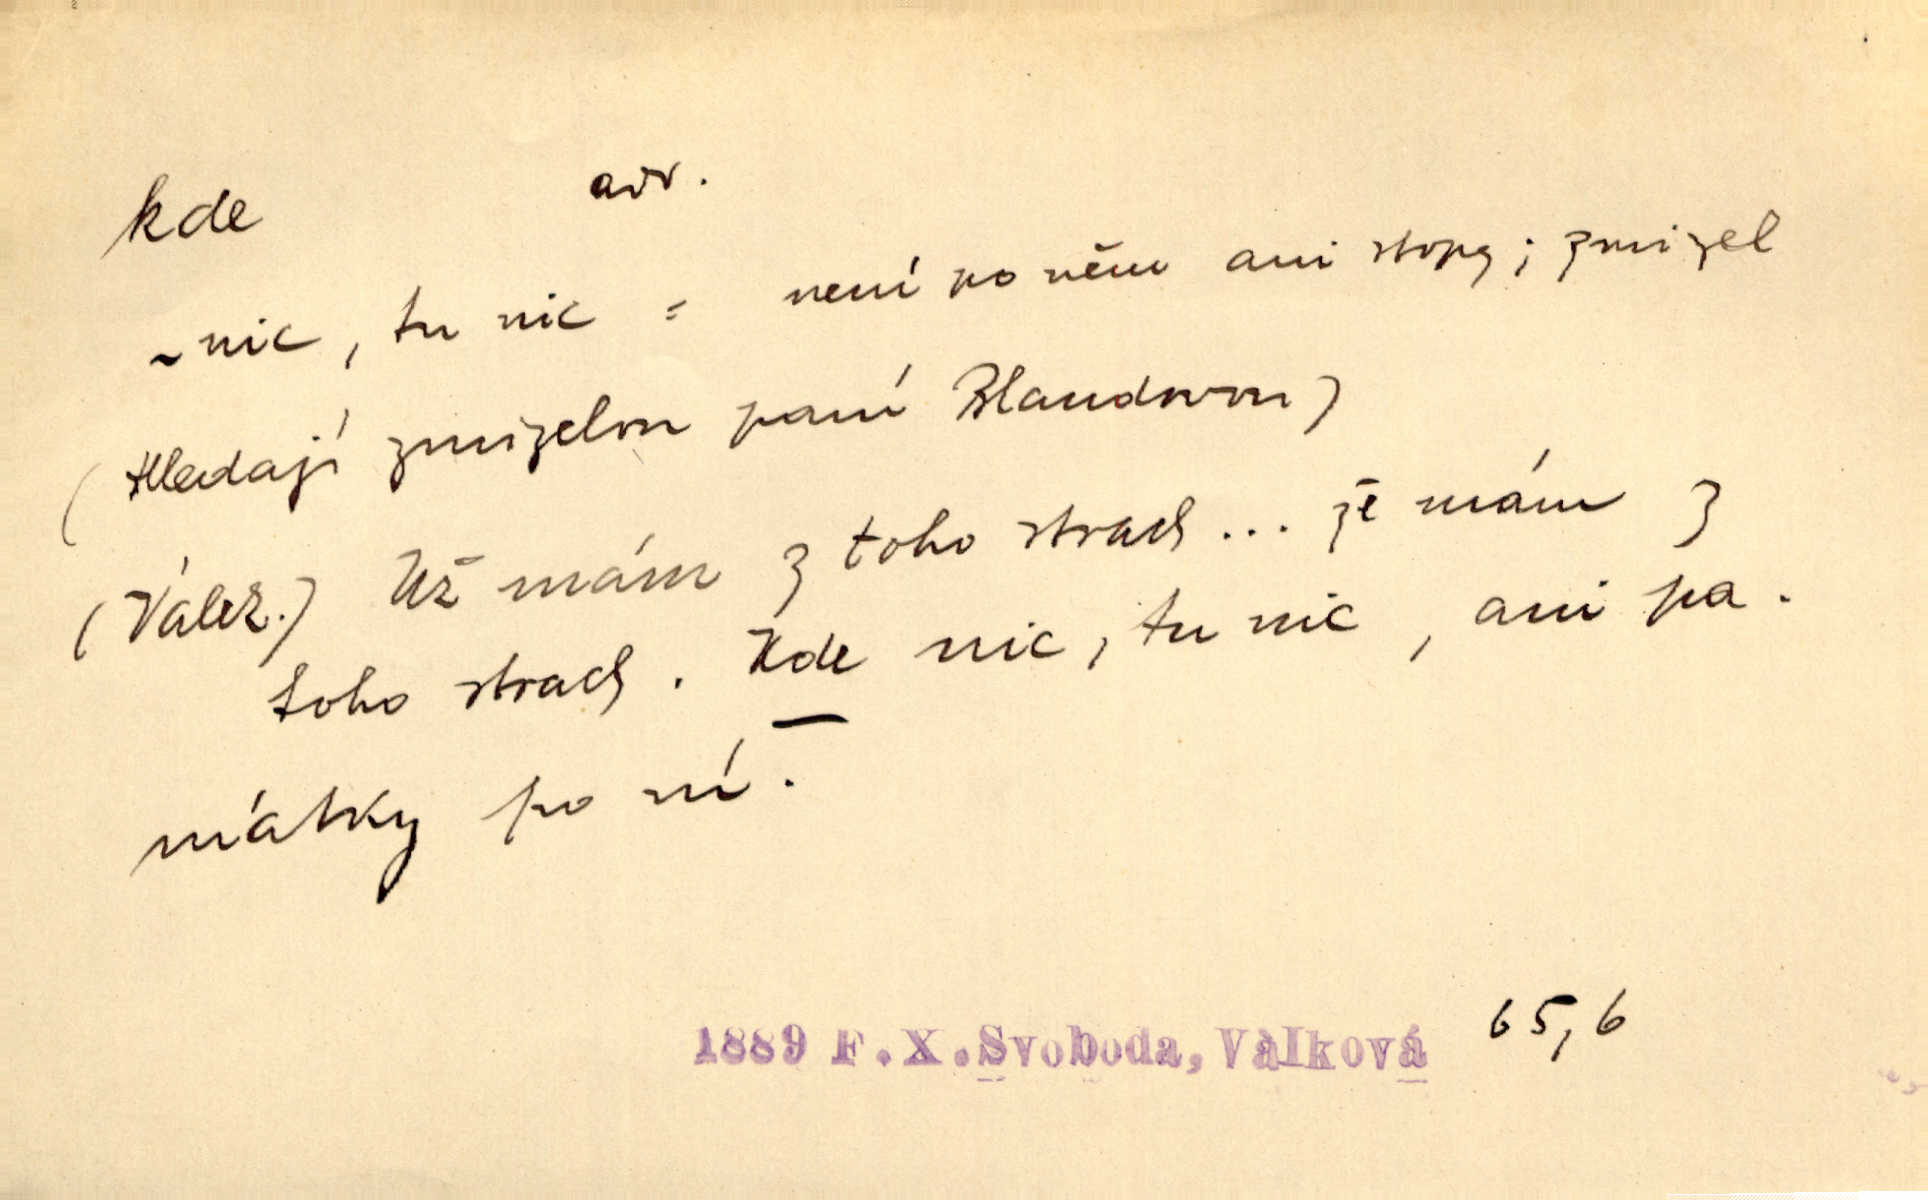 kde adv.
~ nic, tu nic = není po něm ani stopy; zmizel
(Hledají zmizelou paní Blandovou)
(Válek.) Už mám z toho strach... že mám z
toho strach. Kde nic, tu nic, ani pa-
mátky po ní.
1889 F.X.Svoboda, Válková 65,6